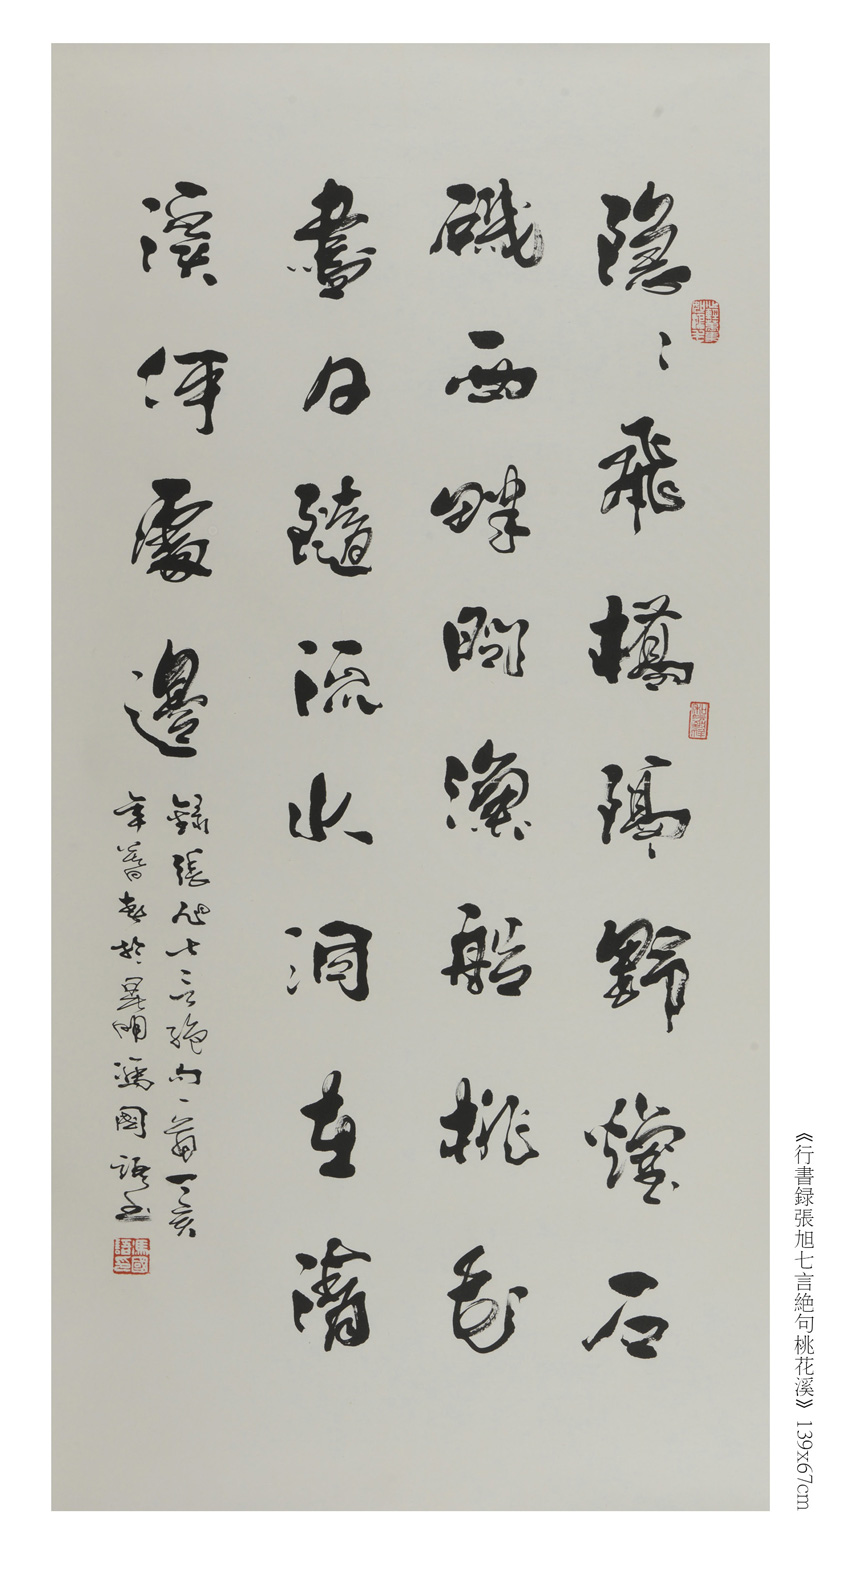 隱隱飛橋隔野煙石
磯西畔問漁船桃花
盡日隨流水洞在清
溪何處邊
錄張旭七言絕句一首丁亥
年暮春於昆明馮國語書
馮國語印
《行書録張旭七言絶句桃花溪》 139x67cm